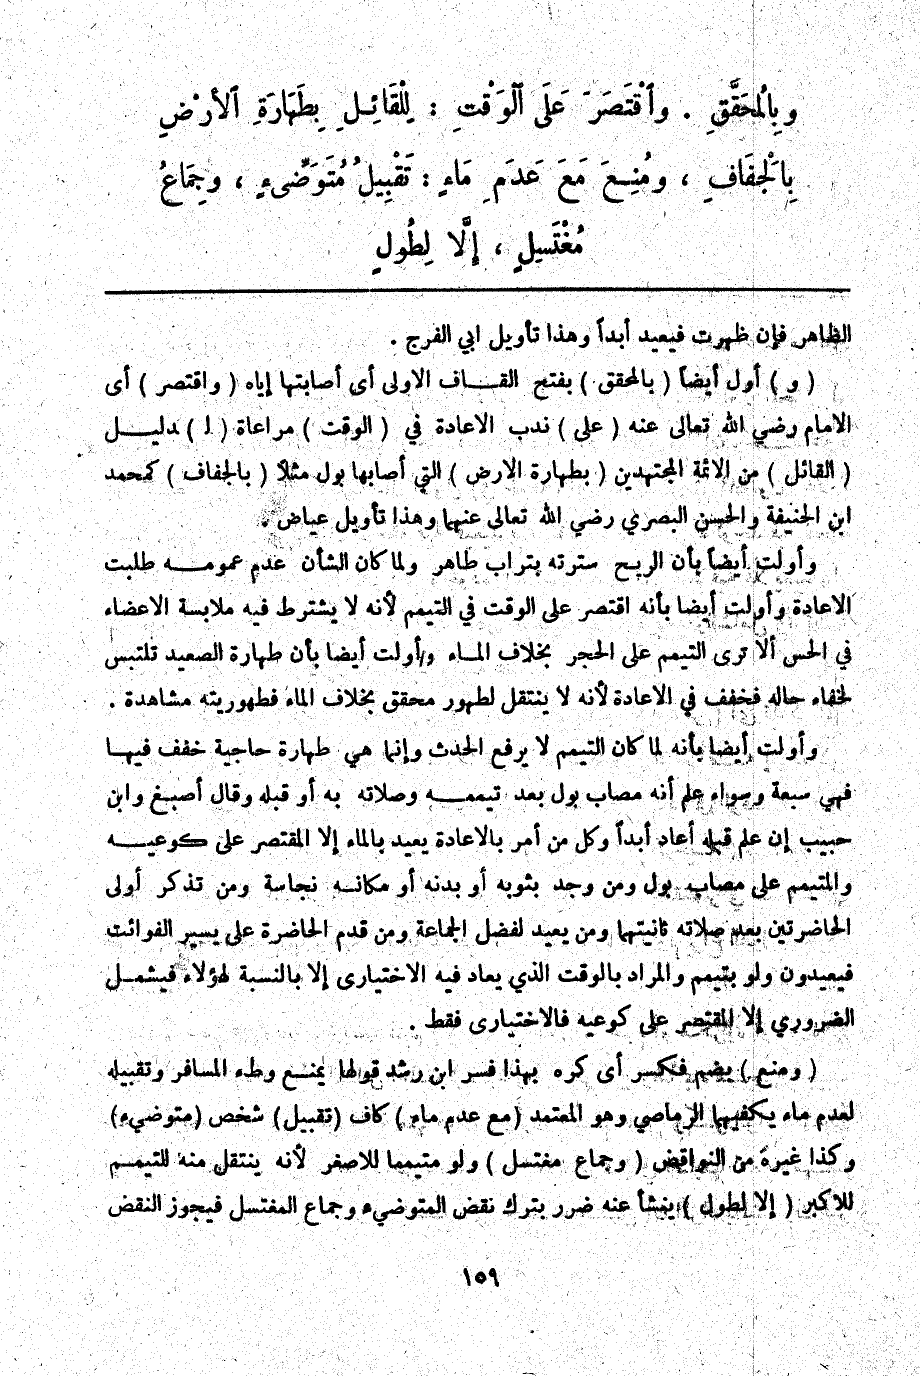 وبِالْمُحَقَّقِ . وٱقْتَصَرَ عَلَى ٱلْوَقْتِ : لِلْقَائِلِ بِطَهَارَةِ ٱلأَرْضِ
بِالْجَفَافِ ، ومُنِعَ مَعَ عَدَمِ مَاءٍ : تَقْبِيلُ مُتَوَضِّىءٍ ، وجِمَاعُ
مُغْتَسِلٍ ، إِلَّا لِطُولٍ
الظاهر فإن ظهرت فيعيد أبداً وهذا تأويل ابي الفرج .
( و ) أول أيضاً ( بالمحقق ) بفتح القاف الاولى أى أصابتها إياه ( واقتصر ) أى
الامام رضي الله تعالى عنه ( على ) ندب الاعادة في ( الوقت ) مراعاة ( ا ) دليل
( القائل ) من الائمة المجتهدين ( بطهارة الارض ) التي أصابها بول مثلاً ( بالجفاف ) كمحمد
ابن الحنيفة والحسن البصري رضي الله تعالى عنهما وهذا تأويل عياض .
وأولت أيضاً بأن الريح سترته بتراب طاهر ولما كان الشأن عدم عمومه طلبت
الاعادة وأولت أيضا بأنه اقتصر على الوقت في التيمم لأنه لا يشترط فيه ملابسة الاعضاء
في الحس ألا ترى التيمم على الحجر بخلاف الماء وأولت أيضا بأن طهارة الصعيد تلتبس
لخفاء حاله فخفف في الاعادة لأنه لا ينتقل لطهور محقق بخلاف الماء فطهوريته مشاهدة .
وأولت أيضا بأنه لما كان التيمم لا يرفع الحدث وإنما هي طهارة حاجية خفف فيها
فهي سبعة وسواء علم أنه مصاب بول بعد تيممه وصلاته به أو قبله وقال أصبغ وابن
حبيب إن علم قبله أعاد أبداً وكل من أمر بالاعادة يعيد بالماء إلا المقتصر على كوعيه
والمتيمم على مصاب بول ومن وجد بثوبه أو بدنه أو مكانه نجاسة ومن تذكر أولى
الحاضرتين بعد صلاته ثانيتها ومن يعيد لفضل الجماعة ومن قدم الحاضرة على يسير الفوائت
فيعيدون ولو بتيمم والمراد بالوقت الذي يعاد فيه الاختيارى إلا بالنسبة لهؤلاء فيشمل
الضروري إلا المقتصر على كوعيه فالاختيارى فقط .
( ومنع ) بضم فكسر أى كره بهذا فسر ابن رشد قولها يمنع وطء المسافر وتقبيله
لعدم ماء يكفيهما الرماصي وهو المعتمد (مع عدم ماء ) كاف (تقبيل) شخص (متوضيء)
وكذا غيره من النواقض ( وجماع مغتسل ) ولو متيمما للاصغر لأنه ينتقل منه للتيمم
للاكبر ( إلا لطول ) ينشأ عنه ضرر بترك نقض المتوضيء وجماع المغتسل فيجوز النقض
١٥٩